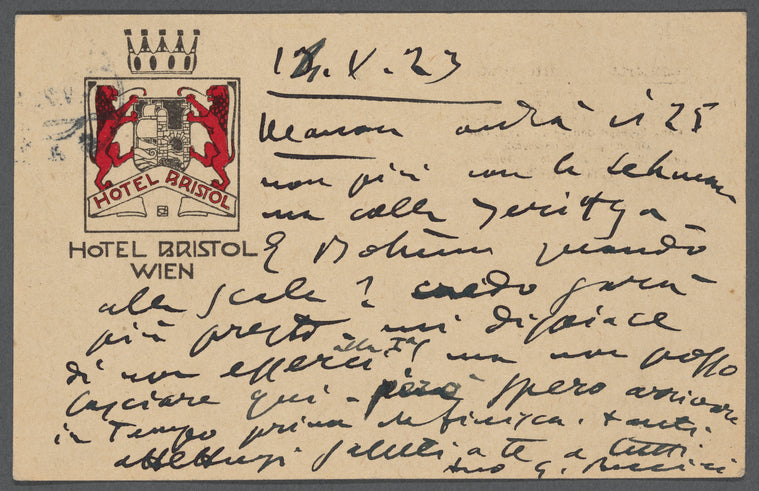 HOTEL BRISTOL
HOTEL BRISTOL
WIEN
12. V. 23
Manon andrà il 25
non più con la Lehmann
ma colla Jeritza
E Bohème quando
alla Scala? credo sarà
più presto - mi dispiace
di non esserci alla Iª ma non posso
lasciare qui - però spero arrivare
in tempo prima che finisca.
affettuosi saluti a te a tutti
tuo G. Puccini